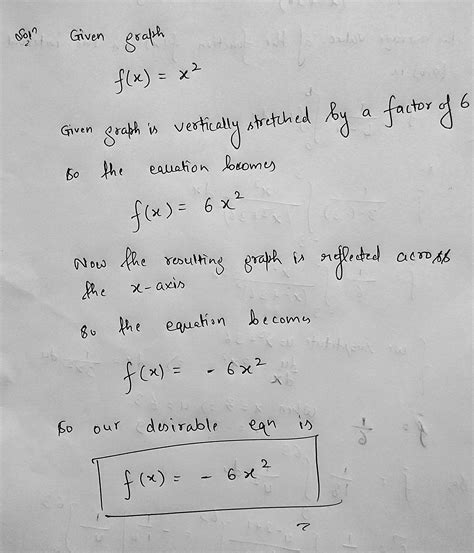 Solⁿ Given graph
f(x) = x²
Given graph is vertically stretched by a factor of 6
So the equation becomes
f(x) = 6x²
Now the resulting graph is reflected across
the x-axis
So the equation becomes
f(x) = - 6x²
So our desirable eqn is
f(x) = - 6x²